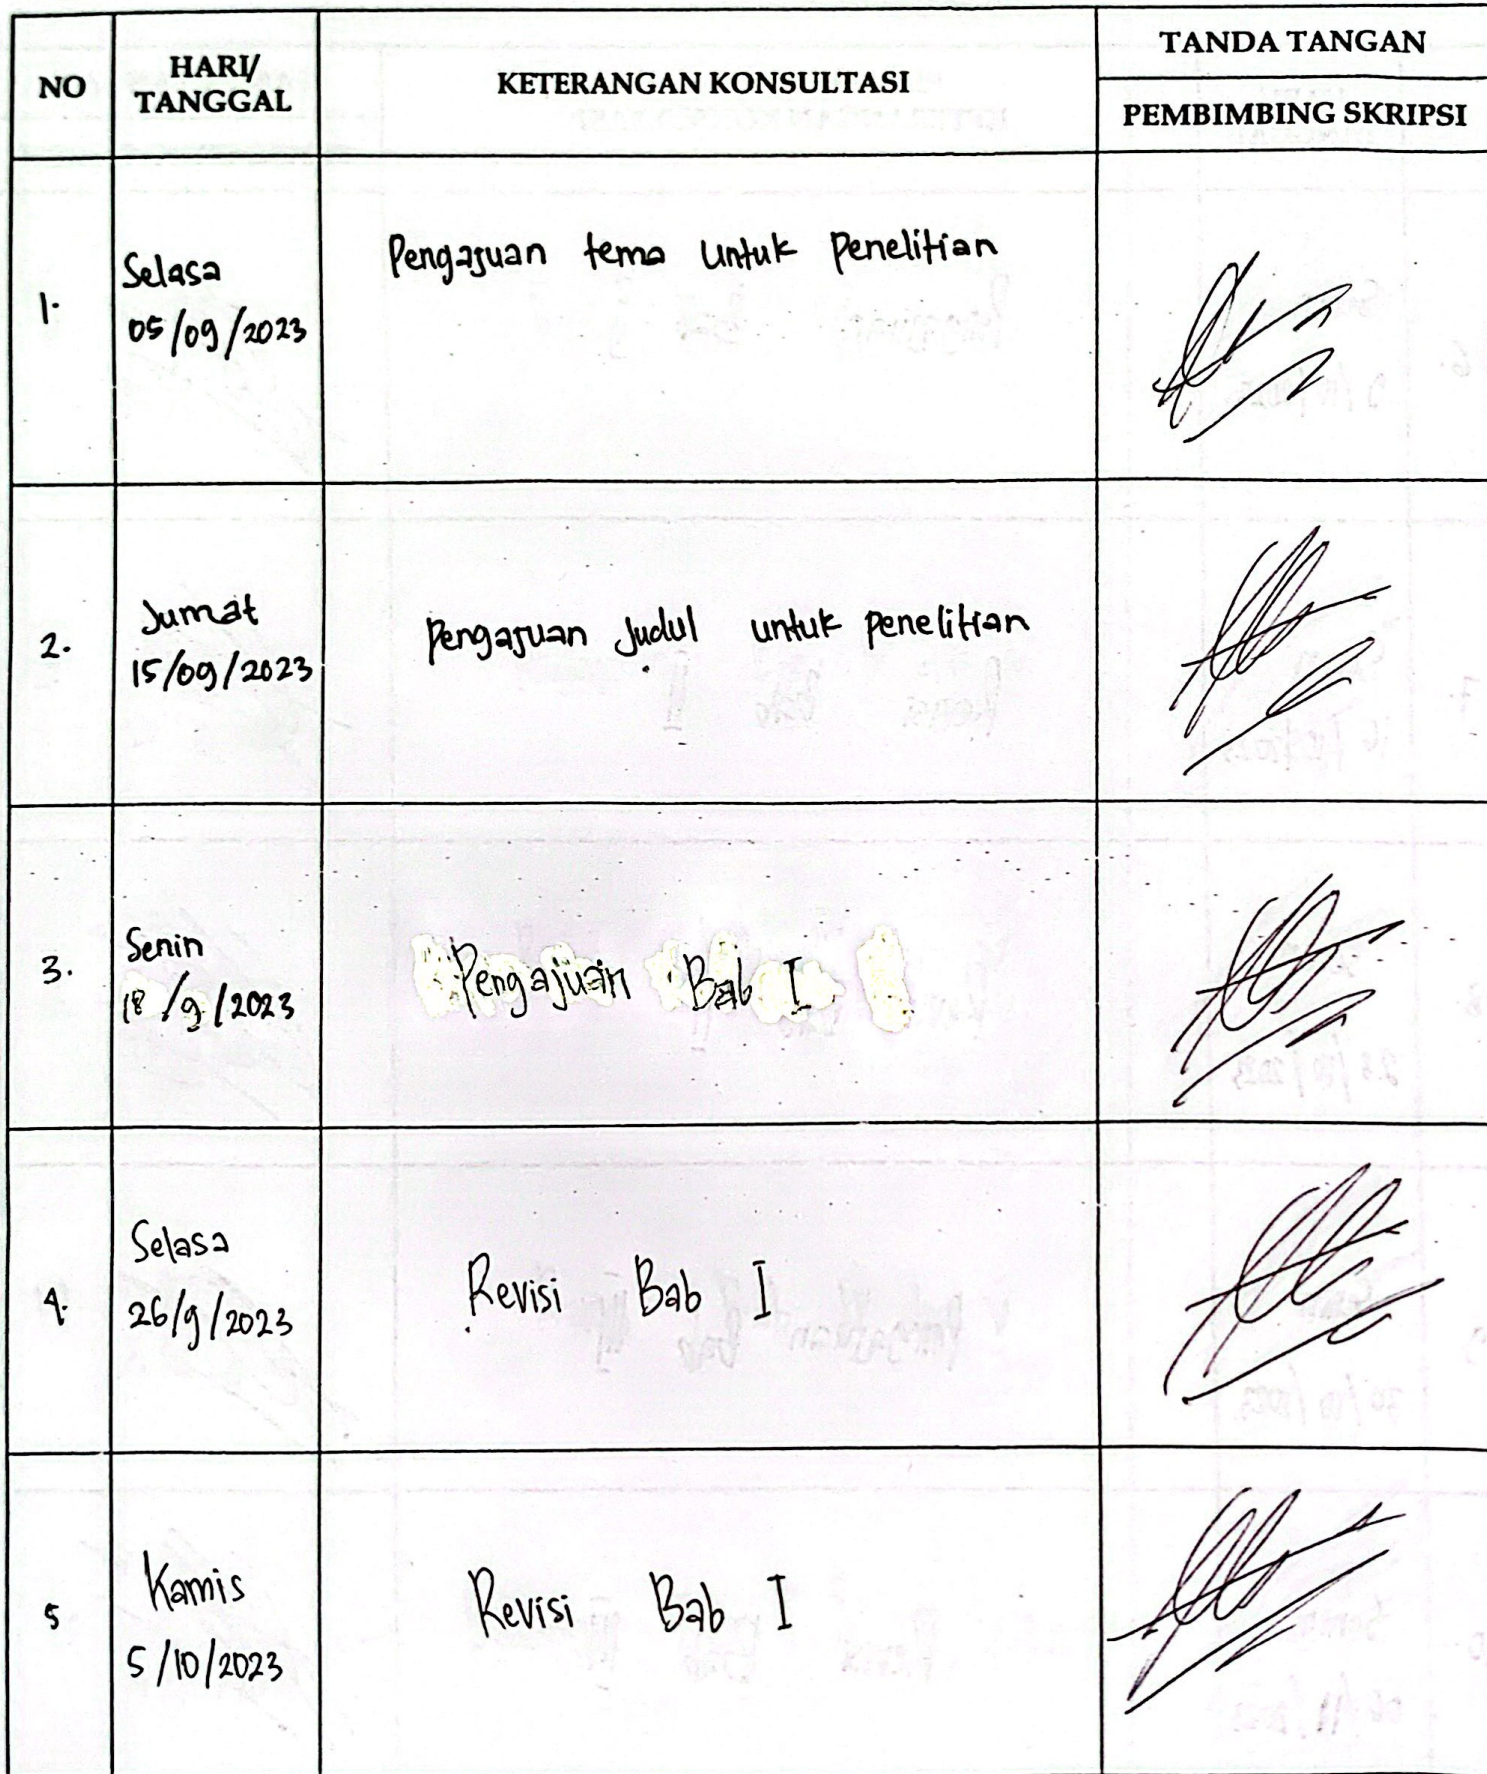 NO
HARI/
TANGGAL
KETERANGAN KONSULTASI
TANDA TANGAN
PEMBIMBING SKRIPSI
1.
Selasa
05/09/2023
Pengajuan tema untuk penelitian
2.
Jumat
15/09/2023
Pengajuan Judul untuk penelitian
3.
Senin
18/9/2023
Pengajuan Bab I
4.
Selasa
26/9/2023
Revisi Bab I
5
Kamis
5/10/2023
Revisi Bab I